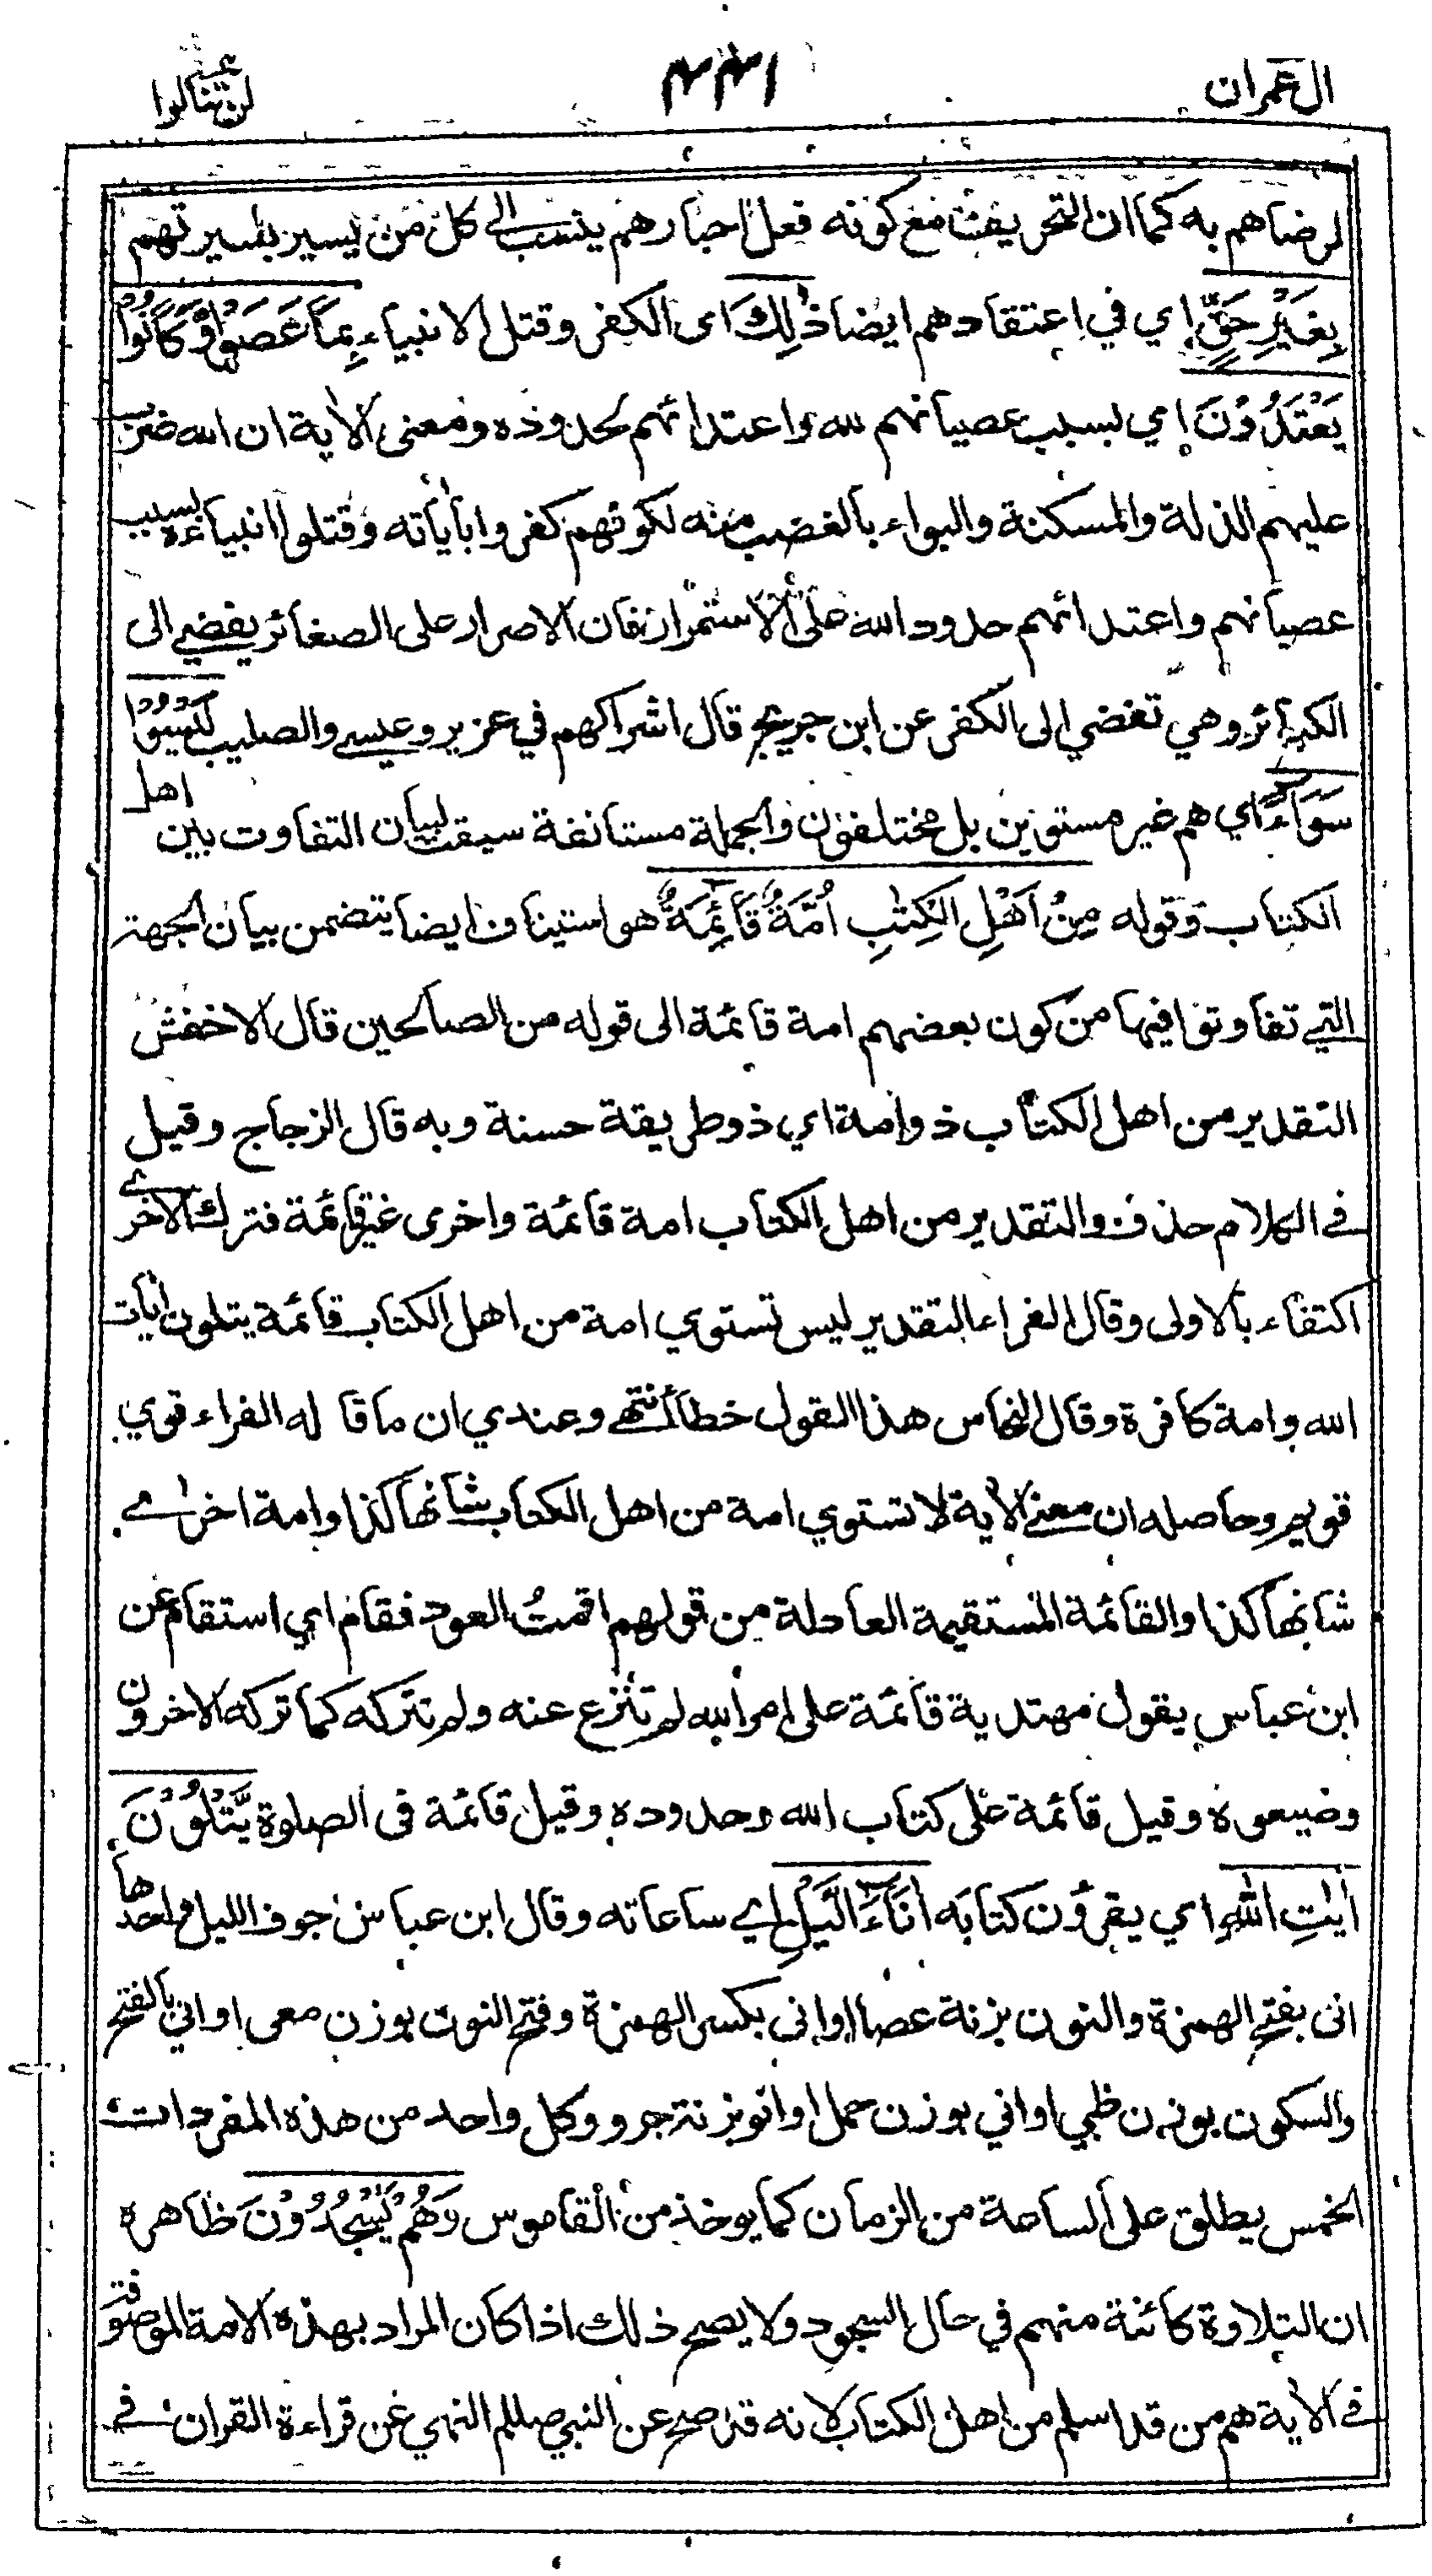 ال عمران ٤٣١ لن تنالوا
لرضاهم به كما ان التحريف مع كونه فعل احبارهم ينسب الى كل من يسير بسيرتهم
بِغَيْرِ حَقٍّ اي في اعتقادهم ايضا ذٰلِكَ اى الكفر وقتل الانبياء بِمَا عَصَوْا وَّكَانُوْا
يَعْتَدُوْنَ اي بسبب عصيانهم لله واعتدائهم لحدوده ومعنى الاٰية ان الله ضرب
عليهم الذلة والمسكنة والبواء بالغضب منه لكونهم كفروا باٰياته وقتلوا انبياءه بسبب
عصيانهم واعتدائهم حدود الله على الاستمرار فان الاصرار على الصغائر يفضي الى
الكبائر وهي تفضي الى الكفر عن ابن جريج قال اشراكهم في عزير وعيسى والصليب لَيْسُوْا
سَوَآءً اي هم غير مستوين بل مختلفون والجملة مستانفة سيقت لبيان التفاوت بين اهل
الكتاب وقوله مِنْ اَهْلِ الْكِتٰبِ اُمَّةٌ قَآئِمَةٌ هو استيناف ايضا يتضمن بيان الجهة
التي تفاوتوا فيها من كون بعضهم امة قائمة الى قوله من الصالحين قال الاخفش
التقدير من اهل الكتاب ذو امة اي ذو طريقة حسنة وبه قال الزجاج وقيل
في الكلام حذف والتقدير من اهل الكتاب امة قائمة واخرى غير قائمة فترك الاخرى
اكتفاء بالاولى وقال الفراء التقدير ليس تستوي امة من اهل الكتاب قائمة يتلون اٰيات
الله وامة كافرة وقال النحاس هذا القول خطأ انتهى وعندي ان ما قاله الفراء قوي
قويم وحاصله ان معنى الاٰية لا تستوي امة من اهل الكتاب شانها كذا وامة اخرى
شانها كذا والقائمة المستقيمة العادلة من قولهم اقمتُ العود فقام اي استقام عن
ابن عباس يقول مهتدية قائمة على امر الله لم تنزع عنه ولم تتركه كما تركه الاخرون
وضيعوه وقيل قائمة على كتاب الله وحدوده وقيل قائمة فى الصلوة يَّتْلُوْنَ
اٰيٰتِ اللّٰهِ اي يقرؤن كتابه اٰنَآءَ الَّيْلِ اي ساعاته وقال ابن عباس جوف الليل واحدها
انى بفتح الهمزة والنون بزنة عصا او انى بكسر الهمزة وفتح النون بوزن معى او اني بالفتح
والسكون بوزن ظبي او اني بوزن حمل او انو بزنة جرو وكل واحد من هذه المفردات
الخمس يطلق على الساعة من الزمان كما يوخذ من القاموس وَهُمْ يَسْجُدُوْنَ ظاهره
ان التلاوة كائنة منهم في حال السجود ولا يصح ذلك اذا كان المراد بهذه الامة الموصوفة
في الاٰية هم من قد اسلم من اهل الكتاب لانه قد صح عن النبي صللم النهي عن قراءة القران في